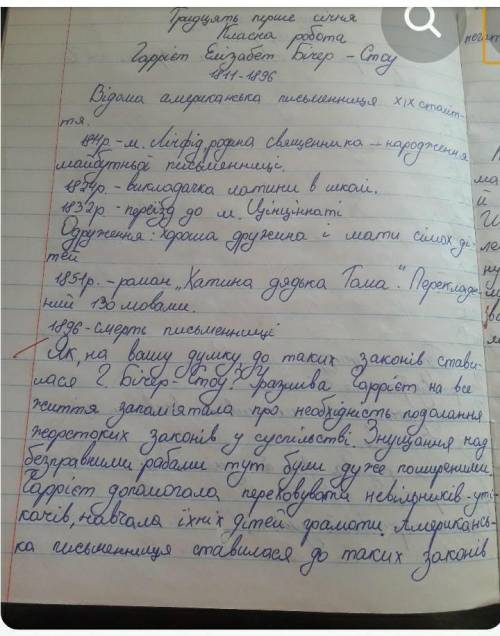 Тридцять перше січня
Класна робота
Гаррієт Елізабет Бічер-Стоу
1811-1896
Відома американська письменниця XIX століт-
тя.
р.-м. Лічфілд, родина священника - народження
майбутньої письменниці.
р.-викладачка латини в школі.
1832р.-переїзд до м. Цінціннаті
Одруження: хороша дружина і мати сімох ді-
тей
1851р.-роман „Хатина дядька Тома". Перекладе-
ний 130 мовами.
1896-смерть письменниці
Як, на вашу думку, до таких законів стави-
лася Г. Бічер-Стоу? Гаррієт на все
життя запам'ятала про необхідність подолання
жорстоких законів у суспільстві. Знущання над
безправними рабами тут були дуже поширеними.
Гаррієт допомогала переховувати невільників-уті-
качів, навчала їхніх дітей грамоти. Американсь-
ка письменниця ставилася до таких законів